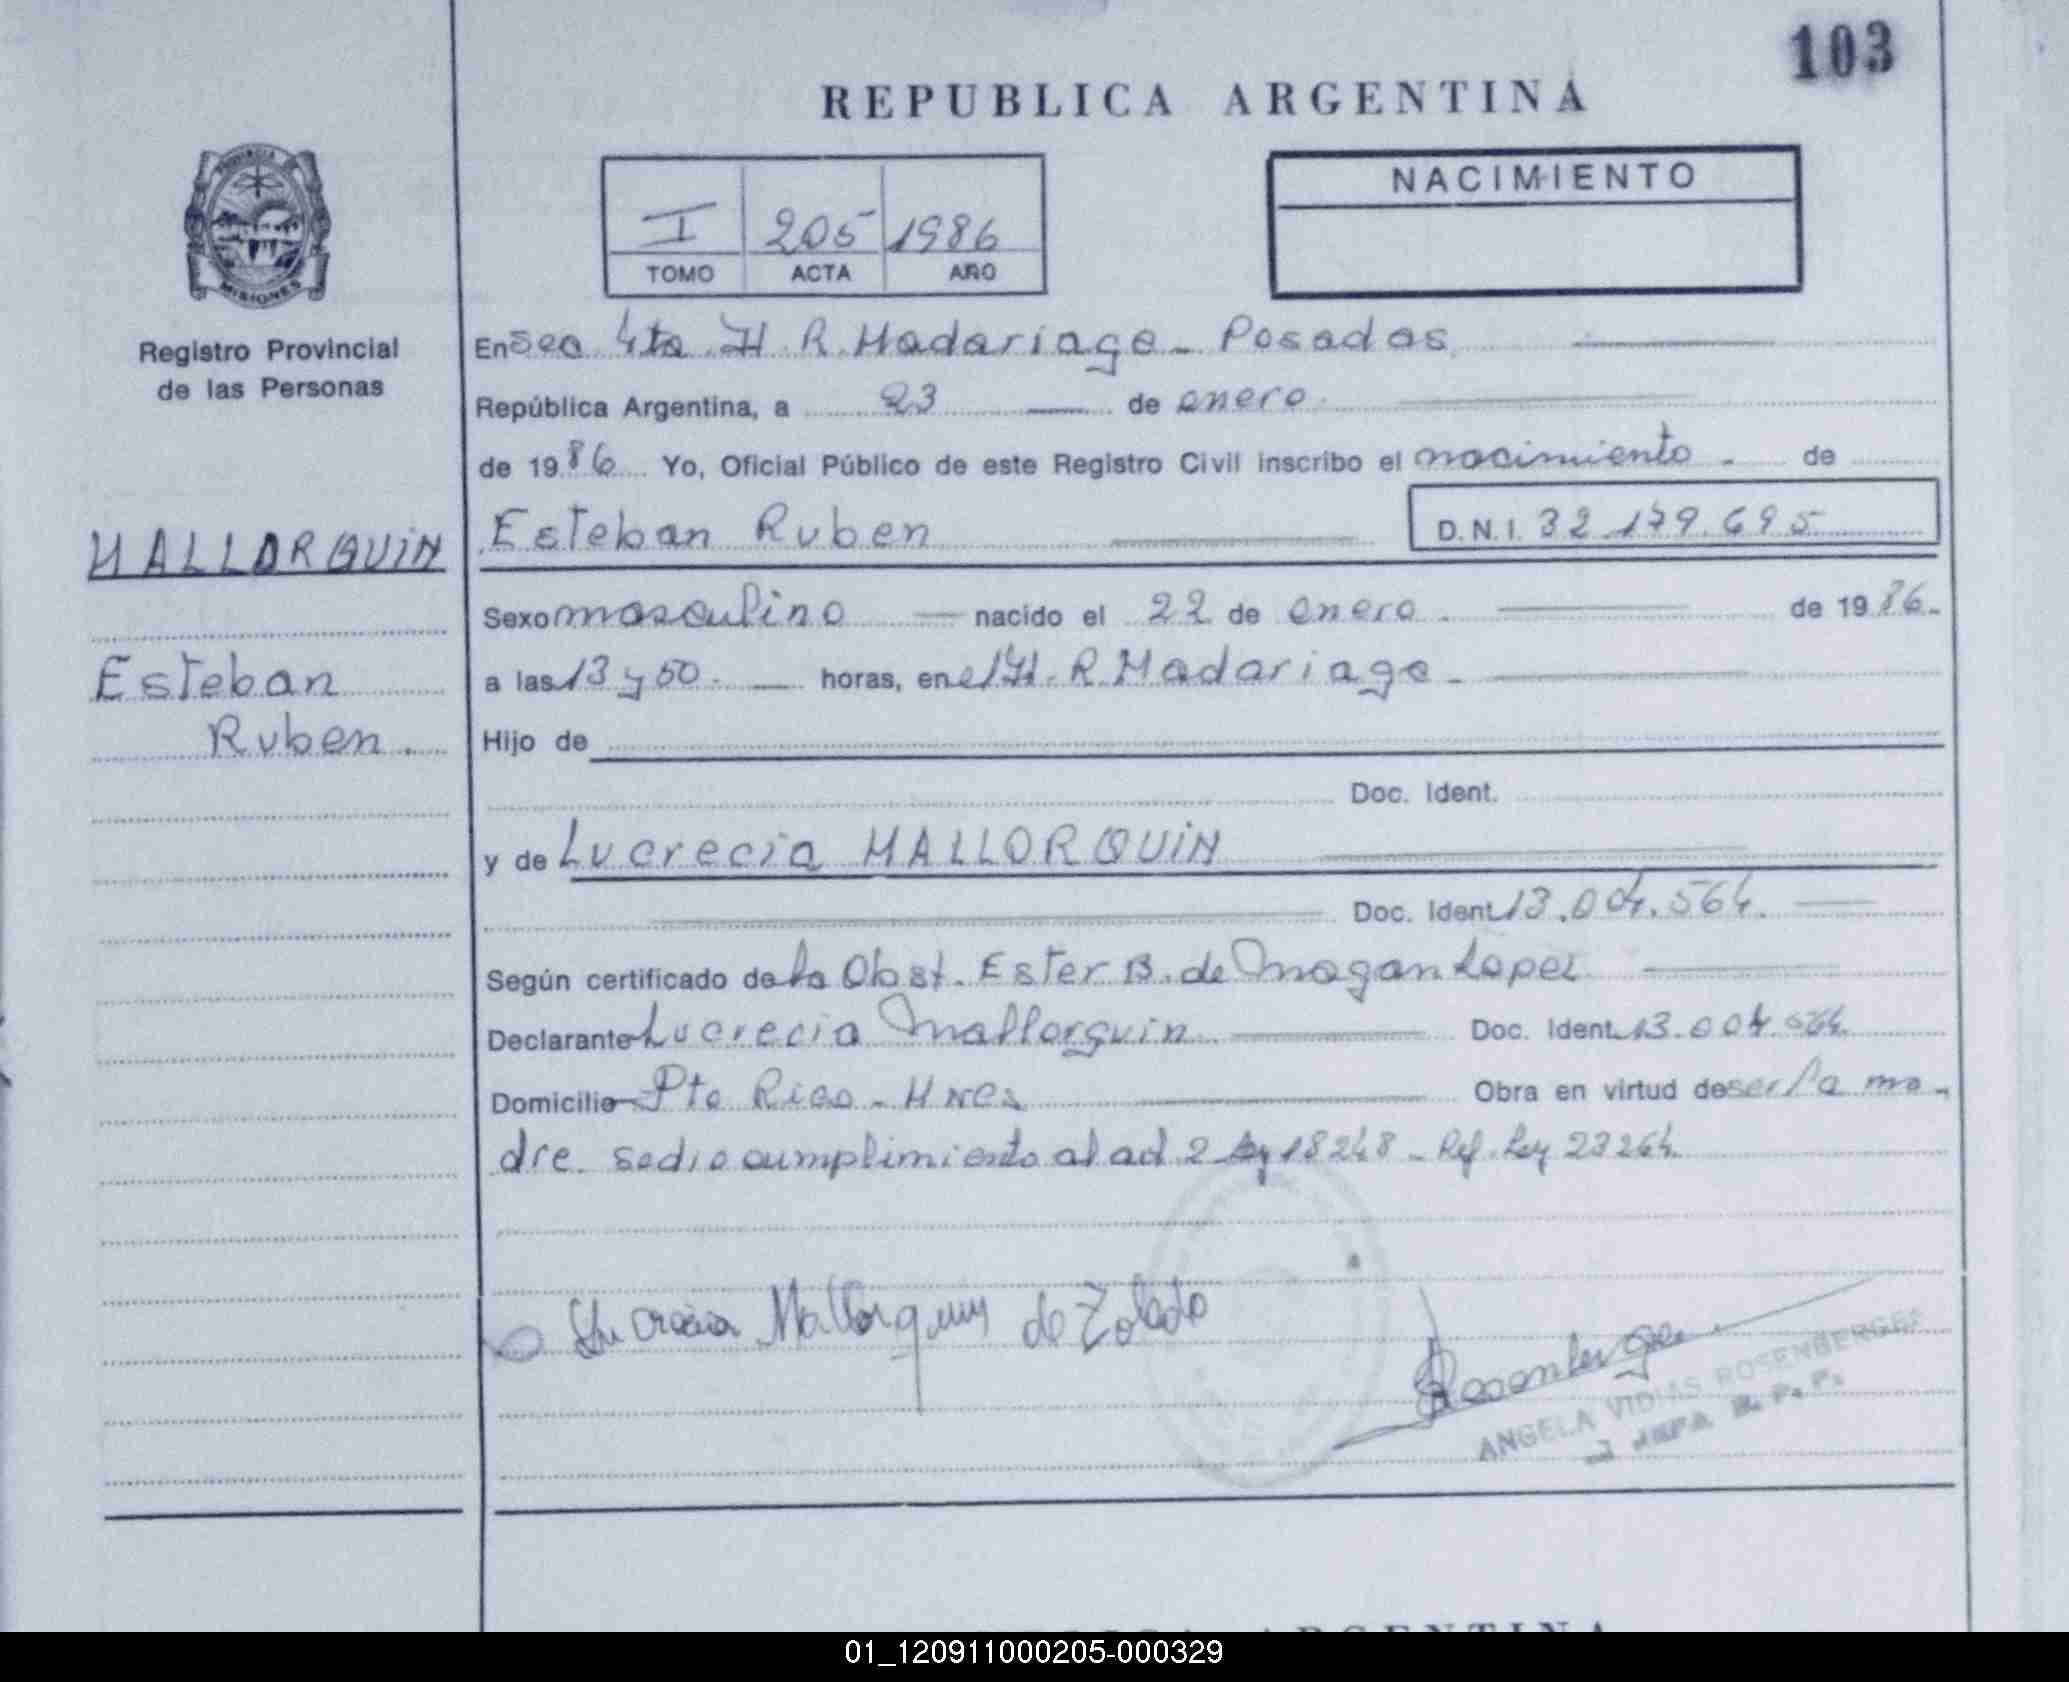 103
REPUBLICA ARGENTINA
PROVINCIA
MISIONES
Registro Provincial
de las Personas
I 205 1986
TOMO ACTA AÑO
NACIMIENTO
En Sec 4ta H. R. Madariaga - Posadas
República Argentina, a 23 de enero
de 1986 Yo, Oficial Público de este Registro Civil inscribo el nacimiento - de
Esteban Ruben D.N.I. 32.179.695
MALLORQUIN
Esteban
Ruben.
Sexo masculino nacido el 22 de enero. de 1986.-
a las 13 y 50. horas, en el H. R. Madariaga -
Hijo de
Doc. Ident.
y de Lucrecia MALLORQUIN
Doc. Ident. 13.004.564.
Según certificado de la Obst. Ester B. de Magan Lopez
Declarante Lucrecia Mallorquin Doc. Ident. 13.004.564.
Domicilio Pto Rico - Mnes Obra en virtud de ser la ma-
dre. se dio cumplimiento al ad 2 Ley 18248 - Ref. Ley 23264.
Lucrecia Mallorquin de Toledo
Rosenberger
ANGELA VIDIAS ROSENBERGER
JEFA R. P. P.
REPUBLICA ARGENTINA
01_120911000205-000329